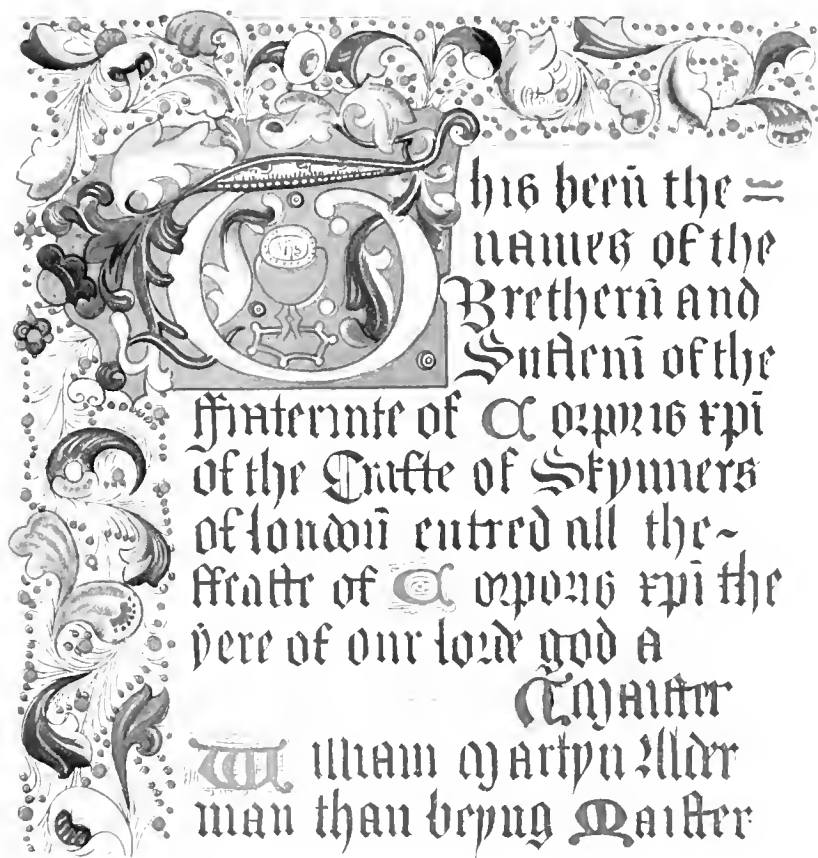 This beeñ the =
names of the
Bretherñ and
Susterñ of the
ffraternite of Corporis xpī
of the Crafte of Skynners
of londoñ entred att the~
ffeaste of Corporis xpī the
yere of our lorde god a
Maister
William Martyn Alder
man than beyng Maister